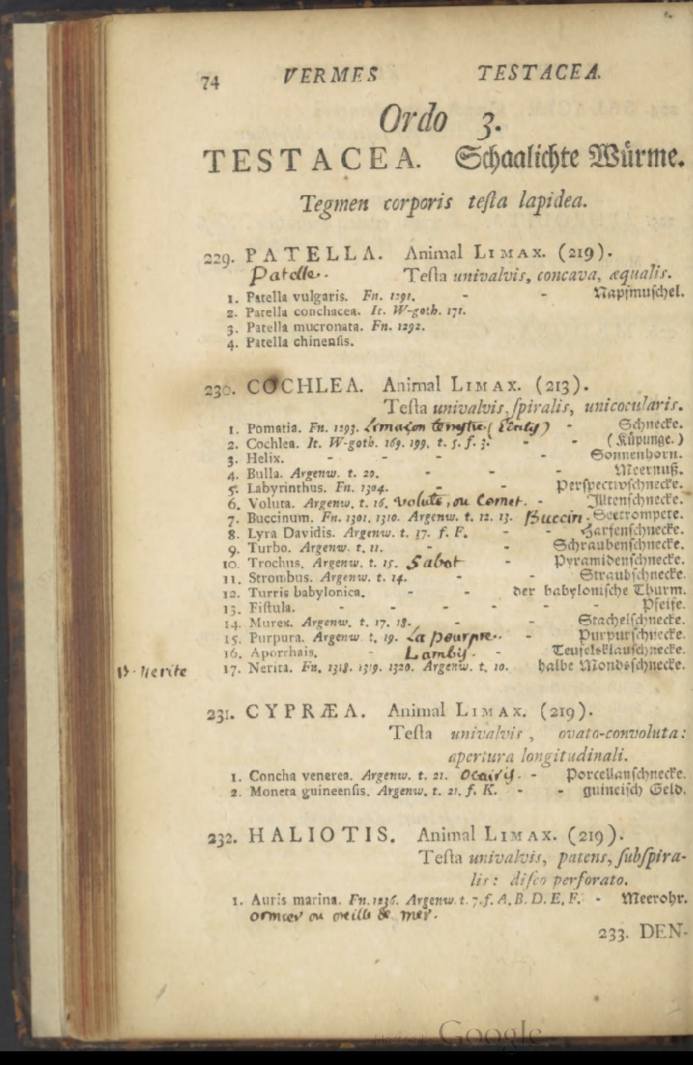 74 VERMES TESTACEA.
Ordo 3.
TESTACEA. Schaalichte Würme.
Tegmen corporis teſta lapidea.
229. PATELLA. Animal LIMAX. (219).
Patelle. Teſta univalvis, concava, æqualis.
1. Patella vulgaris. Fn. 1291. - - Napfmuſchel.
2. Patella conchacea. It. W-goth. 171.
3. Patella mucronata. Fn. 1292.
4. Patella chinenſis.
230. COCHLEA. Animal LIMAX. (213).
Teſta univalvis, ſpiralis, unicocularis.
1. Pomatia. Fn. 1293. Limaçon terrestre - Schnecke.
2. Cochlea. It. W-goth. 169. 199. t. 5. f. 3. - - (Küpunge.)
3. Helix. - - - - - Sonnenhorn.
4. Bulla. Argenw. t. 20. - - - Meernuß.
5. Labyrinthus. Fn. 1304. - - Perſpectivſchnecke.
6. Voluta. Argenw. t. 16. volute, ou Cornet. - Tütenſchnecke.
7. Buccinum. Fn. 1301. 1310. Argenw. t. 12. 13. Buccin - Seetrompete.
8. Lyra Davidis. Argenw. t. 17. f. F. - - Harfenſchnecke.
9. Turbo. Argenw. t. 11. - - Schraubenſchnecke.
10. Trochus. Argenw. t. 15. Sabot - Pyramidenſchnecke.
11. Strombus. Argenw. t. 14. - - Straubſchnecke.
12. Turris babylonica. - - der babyloniſche Thurm.
13. Fiſtula. - - - - - - Pfeife.
14. Murex. Argenw. t. 17. 18. - - - Stachelſchnecke.
15. Purpura. Argenw t. 19. La pourpre. - Purpurſchnecke.
16. Aporrhais. - Lambis - - Teufelsklauſchnecke.
Nerite 17. Nerita. Fn. 1318. 1319. 1320. Argenw. t. 10. halbe Mondsſchnecke.
231. CYPRÆA. Animal LIMAX. (219).
Teſta univalvis, ovato-convoluta:
apertura longitudinali.
1. Concha venerea. Argenw. t. 21. - Porcellanſchnecke.
2. Moneta guineenſis. Argenw. t. 21. f. K. - - guineiſch Geld.
232. HALIOTIS. Animal LIMAX. (219).
Teſta univalvis, patens, ſubſpira-
lis: diſco perforato.
1. Auris marina. Fn. 1236. Argenw. t. 7. f. A. B. D. E. F. - Meerohr.
ormier ou oreille de mer.
233. DEN-
Google